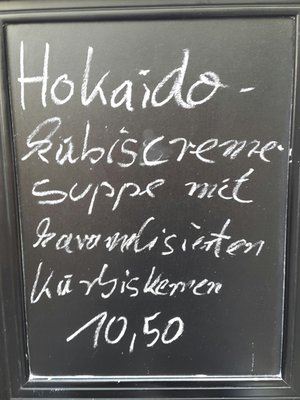 Hokaido-
kübiscreme-
suppe mit
karamlisierten
Kürbiskernen
10,50